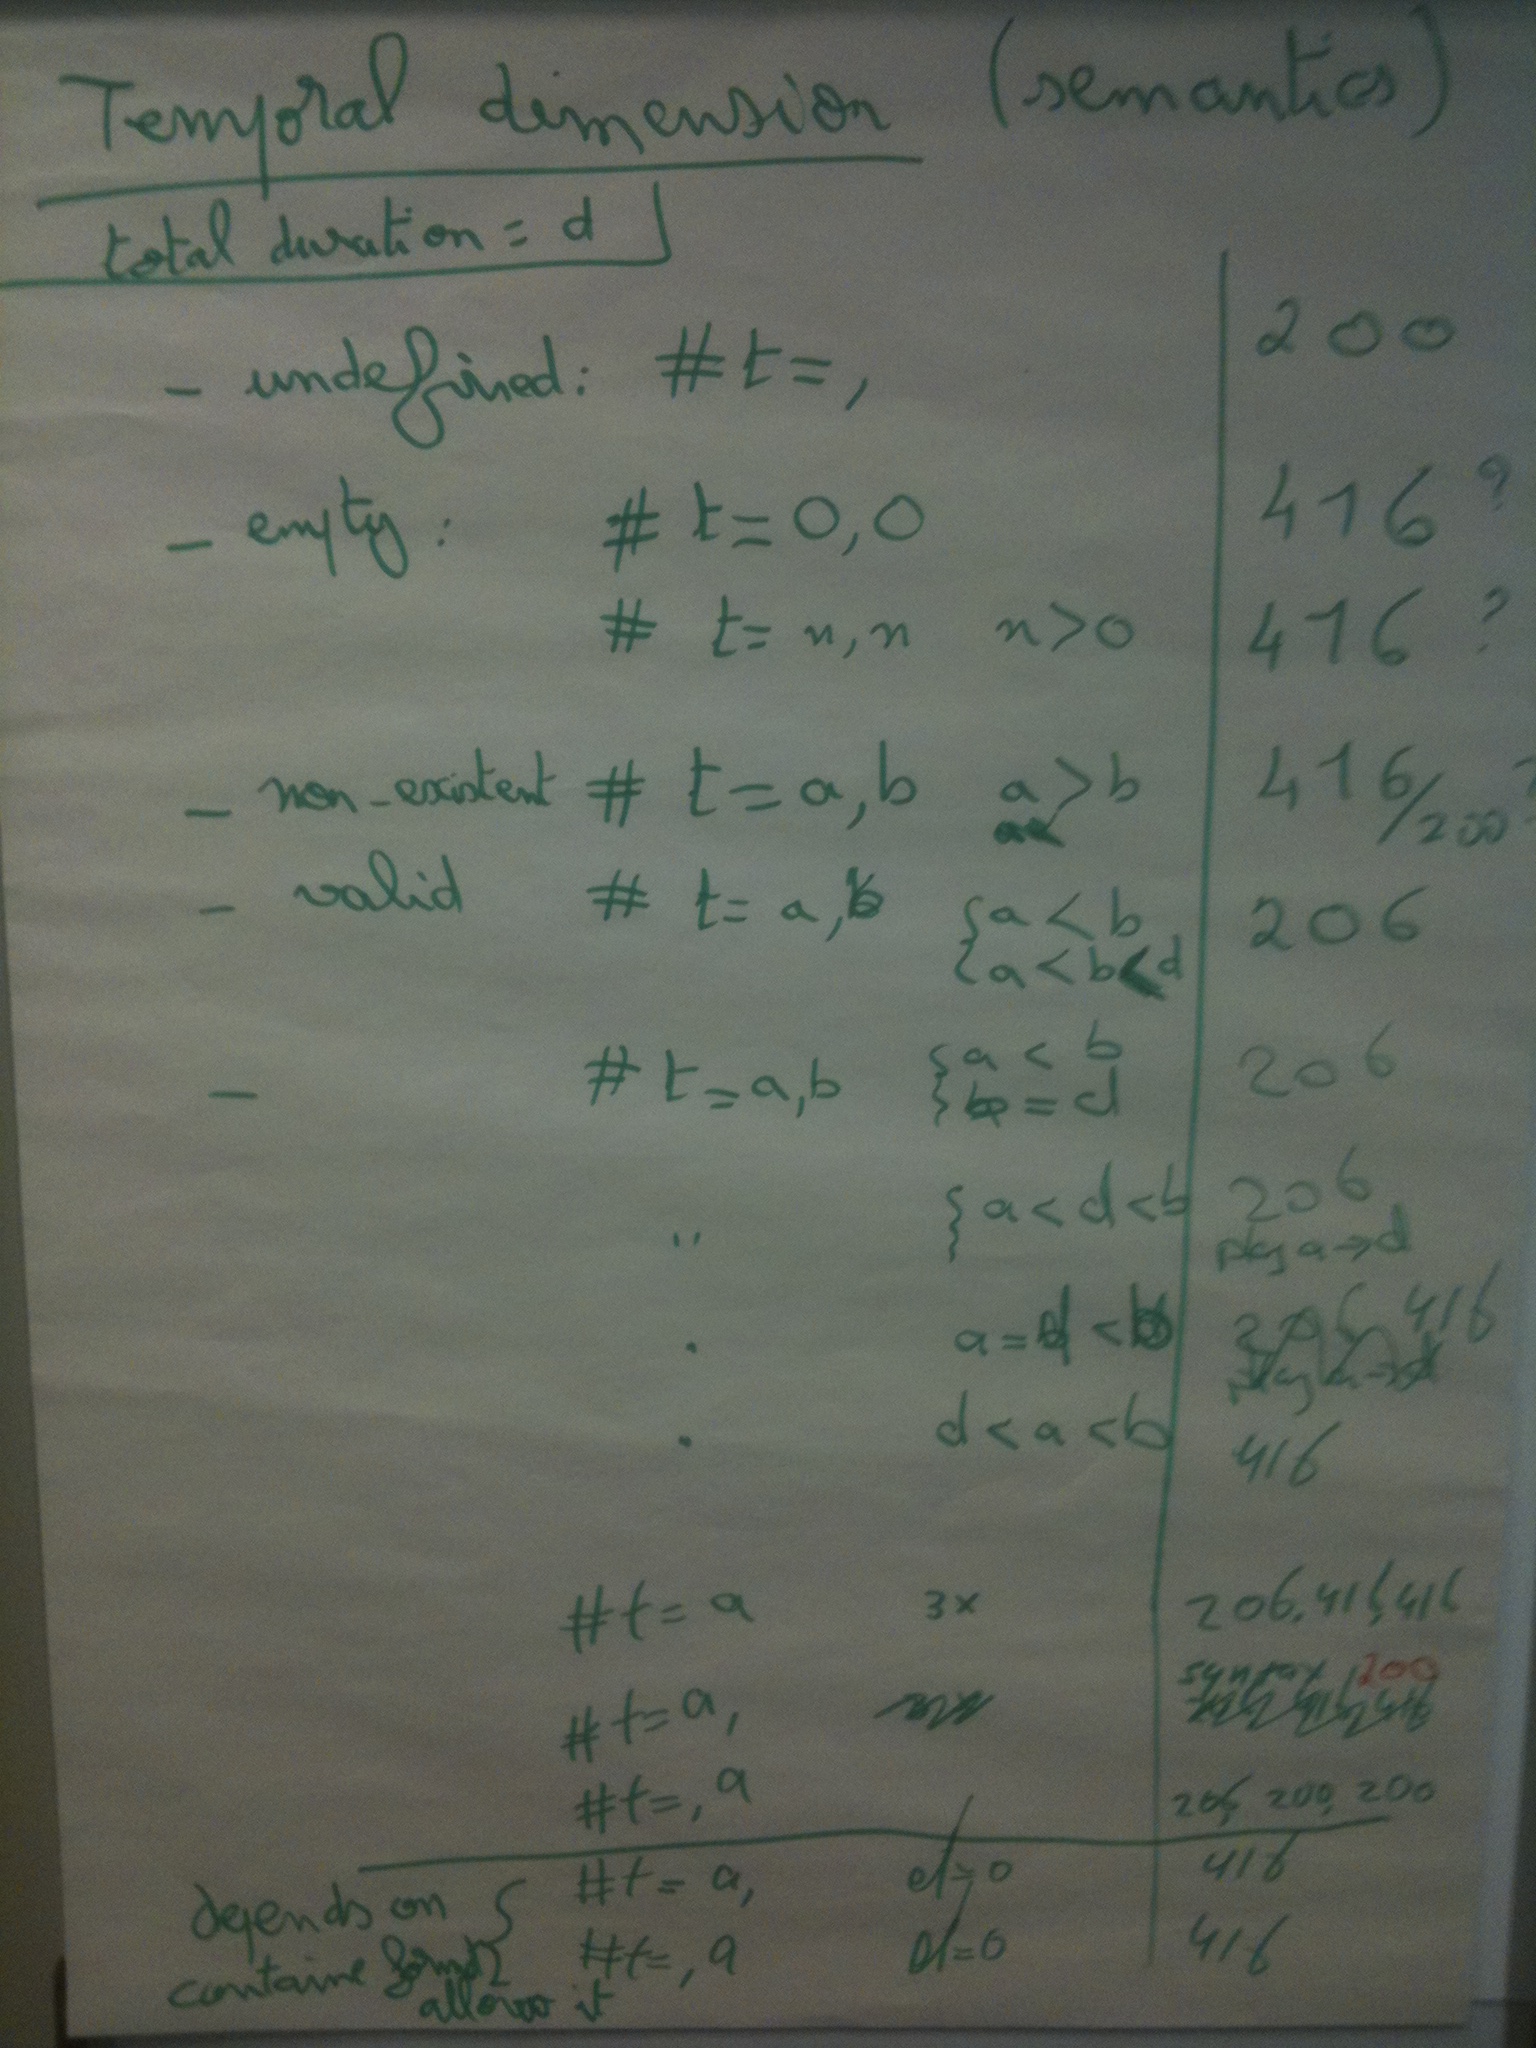 Temporal dimension (semantics)
total duration = d
- undefined: # t=, 200
- empty: # t=0,0 416 ?
# t= n,n n>0 416 ?
- non-existent # t=a,b a>b 416/200 ?
- valid # t= a,b {a < b 206
{a < b < d
- # t=a,b {a < b 206
b = d
" {a < d < b 206
play a→d
. a = d < b 416
. d < a < b 416
#t= a 3x 206, 416, 416
#t=a, syntax, 200
#t=,a 206, 200, 200
#t= a, d=0 416
depends on { #t=,a d=0 416
containe format
allows it